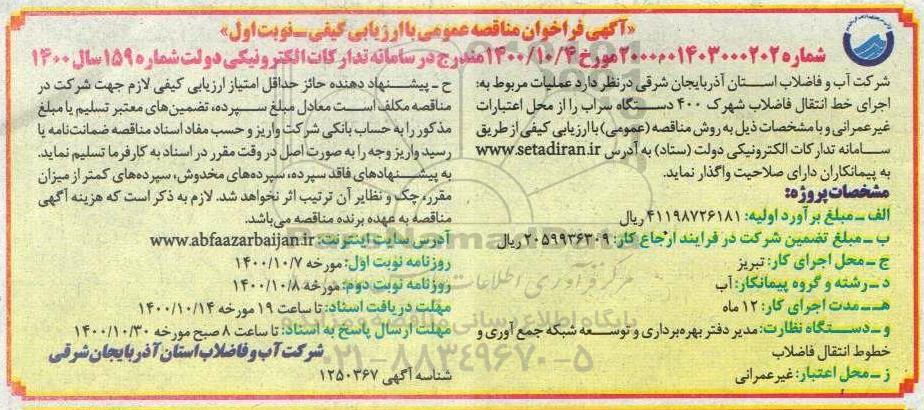 «آگهی فراخوان مناقصه عمومی با ارزیابی کیفی ـ نوبت اول»
شماره ۲۰۰۰۰۰۱۴۰۳۰۰۰۲۰۲ مورخ ۱۴۰۰/۱۰/۴ مندرج در سامانه تدارکات الکترونیکی دولت شماره ۱۵۹ سال ۱۴۰۰
شرکت آب و فاضلاب استان آذربایجان شرقی در نظر دارد عملیات مربوط به:
اجرای خط انتقال فاضلاب شهرک ۴۰۰ دستگاه سراب را از محل اعتبارات
غیرعمرانی و با مشخصات ذیل به روش مناقصه (عمومی) با ارزیابی کیفی از طریق
سامانه تدارکات الکترونیکی دولت (ستاد) به آدرس www.setadiran.ir
به پیمانکاران دارای صلاحیت واگذار نماید.
مشخصات پروژه:
الف ـ مبلغ برآورد اولیه: ۴۱۱۹۸۷۲۶۱۸۱ ریال
ب ـ مبلغ تضمین شرکت در فرایند ارجاع کار: ۲۰۵۹۹۳۶۳۰۹ ریال
ج ـ محل اجرای کار: تبریز
د ـ رشته و گروه پیمانکار: آب
هـ ـ مدت اجرای کار: ۱۲ ماه
و ـ دستگاه نظارت: مدیر دفتر بهره‌برداری و توسعه شبکه جمع آوری و
خطوط انتقال فاضلاب
ز ـ محل اعتبار: غیرعمرانی
ح ـ پیشنهاد دهنده حائز حداقل امتیاز ارزیابی کیفی لازم جهت شرکت در
مناقصه مکلف است معادل مبلغ سپرده، تضمین‌های معتبر تسلیم یا مبلغ
مذکور را به حساب بانکی شرکت واریز و حسب مفاد اسناد مناقصه ضمانت‌نامه یا
رسید واریز وجه را به صورت اصل در وقت مقرر در اسناد به کارفرما تسلیم نماید.
به پیشنهادهای فاقد سپرده، سپرده‌های مخدوش، سپرده‌های کمتر از میزان
مقرر، چک و نظایر آن ترتیب اثر نخواهد شد. لازم به ذکر است که هزینه آگهی
مناقصه به عهده برنده مناقصه می‌باشد.
آدرس سایت اینترنت: www.abfaazarbaijan.ir
روزنامه نوبت اول: مورخه ۱۴۰۰/۱۰/۷
روزنامه نوبت دوم: مورخه ۱۴۰۰/۱۰/۸
مهلت دریافت اسناد: تا ساعت ۱۹ مورخه ۱۴۰۰/۱۰/۱۴
مهلت ارسال پاسخ به اسناد: تا ساعت ۸ صبح مورخه ۱۴۰۰/۱۰/۳۰
شرکت آب و فاضلاب استان آذربایجان شرقی
شناسه آگهی ۱۲۵۰۳۶۷
۰۲۱-۸۸۳۴۹۶۷۰-۵